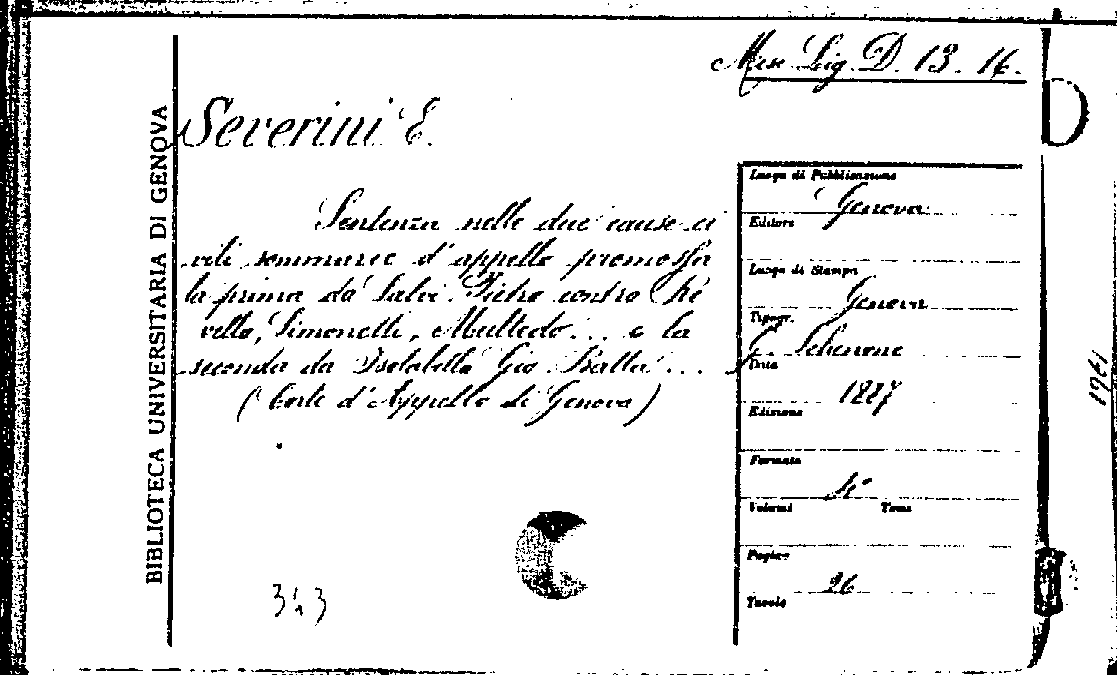 Misc Lig. D. 13. 14.
BIBLIOTECA UNIVERSITARIA DI GENOVA
Severini E.
Sentenza nelle due cause ci
vili sommarie d'appello promossa
la prima da Salvi Pietro contro Chi
vello, Simonetti, Multedo... e la
seconda da Isolabella Gio Batta...
(Corte d'Appello di Genova)
Luogo di Pubblicazione
Genova
Editore
Luogo di Stampa
Genova
Tipogr.
G. Schenone
Data
1887
Edizione
Formato
4°
Volumi Tomi
Pagine
26
Tavole
1961